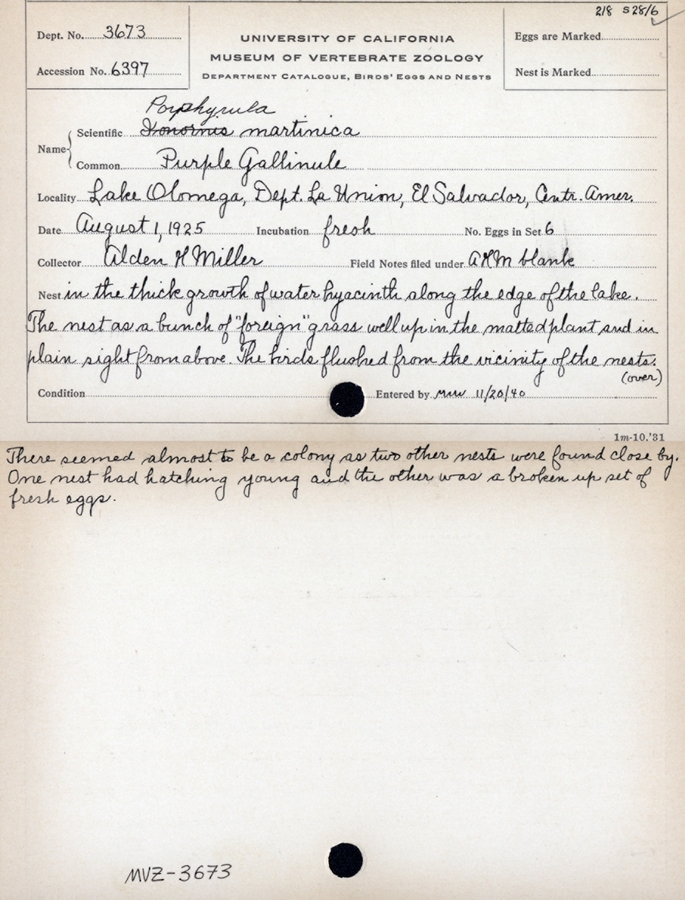 218 s28/6 ✓
Dept. No. 3673
UNIVERSITY OF CALIFORNIA
Eggs are Marked
MUSEUM OF VERTEBRATE ZOOLOGY
Accession No. 6397
DEPARTMENT CATALOGUE, BIRDS' EGGS AND NESTS
Nest is Marked
Porphyrula
Name Scientific Ionornis martinica
Common Purple Gallinule
Locality Lake Olomega, Dept. La Union, El Salvador, Centr. Amer.
Date August 1, 1925 Incubation fresh No. Eggs in Set 6
Collector Alden H Miller Field Notes filed under AHM blank
Nest in the thick growth of water hyacinth along the edge of the lake.
The nest as a bunch of "foreign" grass well up in the matted plant and in
plain sight from above. The birds flushed from the vicinity of the nests.
(over)
Condition Entered by MW 11/20/40
1m-10.'31
There seemed almost to be a colony as two other nests were found close by.
One nest had hatching young and the other was a broken up set of
fresh eggs.
MVZ-3673